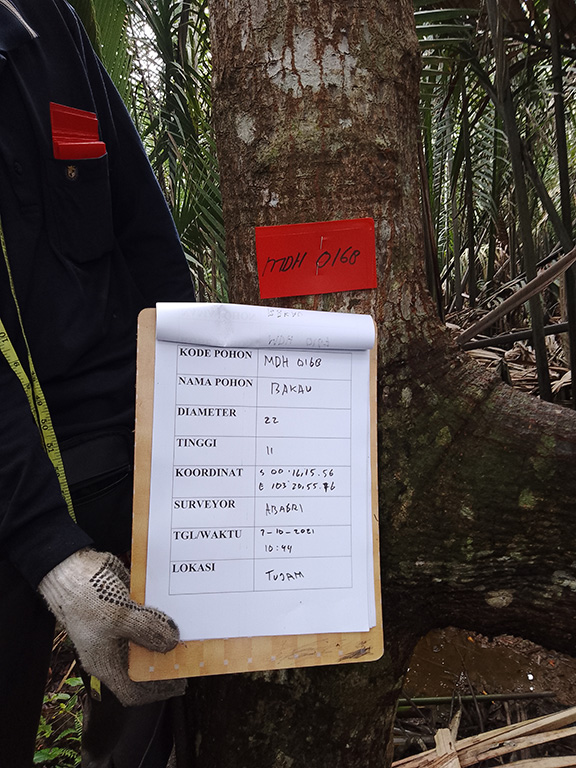 MDH 0168
KODE POHON MDH 0168
NAMA POHON BAKAU
DIAMETER 22
TINGGI 11
KOORDINAT S 00°16'15.56
E 103°20'55.76
SURVEYOR ABASRI
TGL/WAKTU 7-10-2021
10:44
LOKASI TUJAM